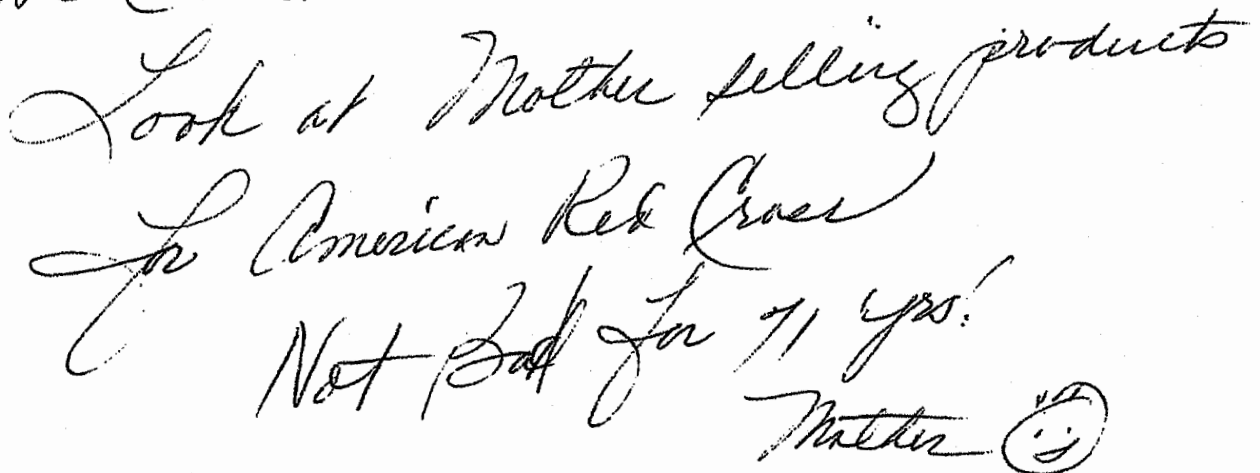 Look at Mother selling products
for American Red Cross
Not Bad for 71 yrs!
Mother